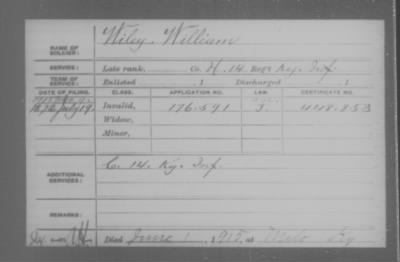 NAME OF SOLDIER: Wiley, William
SERVICE: Late rank, Co. H, 14 Reg't Ky. Inf.
TERM OF SERVICE: Enlisted , 1 Discharged , 1
DATE OF FILING. CLASS. APPLICATION NO. LAW. CERTIFICATE NO.
1872 July 19. Invalid, 176.591
Widow,
Minor,
ADDITIONAL SERVICES: C. 14. Ky. Inf.
REMARKS:
Died June 1, 1915, at Ky